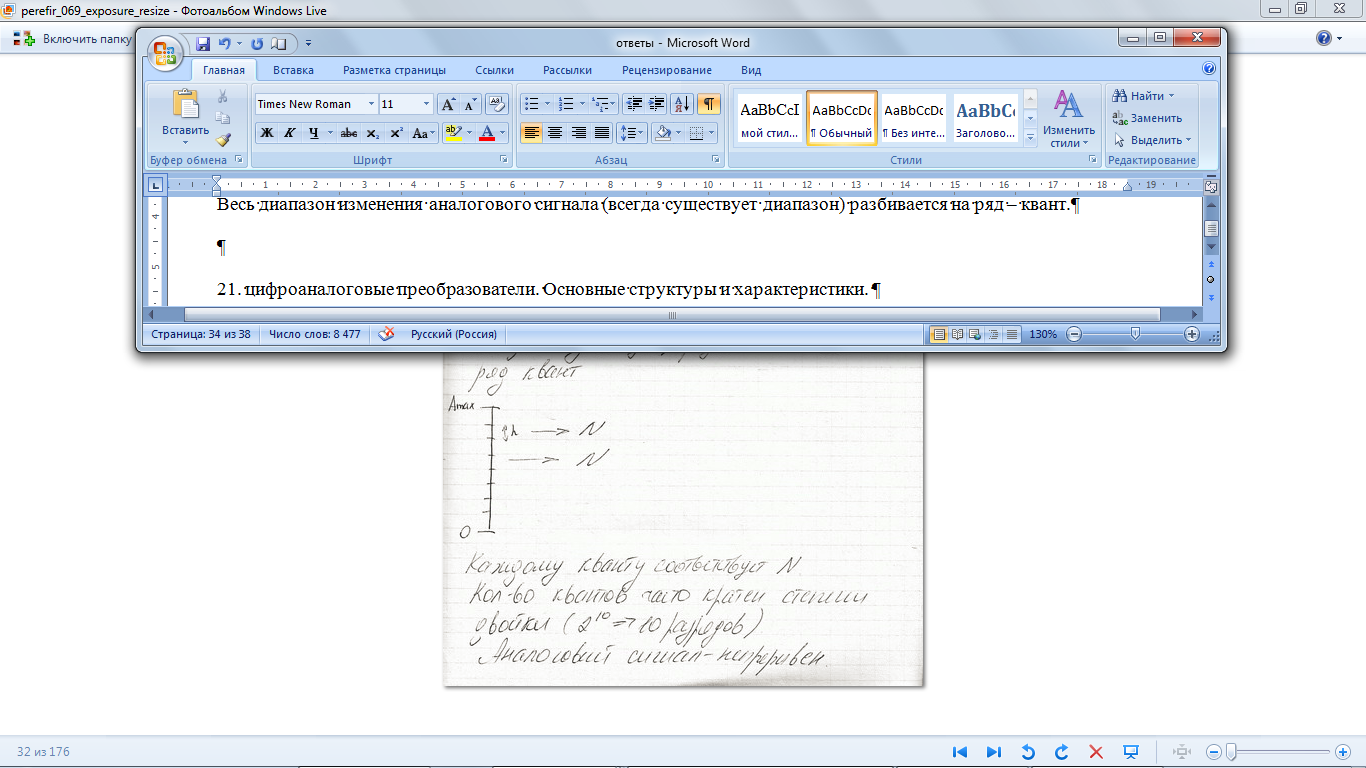 perefir_069_exposure_resize - Фотоальбом Windows Live
Включить папку
ответы - Microsoft Word
Главная Вставка Разметка страницы Ссылки Рассылки Рецензирование Вид
Вставить
Times New Roman 11
Ж К Ч abc x₂ x² Aa
AaBbCcI AaBbCcDc AaBbCcDc AaBbCc
мой стил... ¶ Обычный ¶ Без инте... Заголово...
Изменить стили
Найти
Заменить
Выделить
Буфер обмена Шрифт Абзац Стили Редактирование
1 2 3 4 5 6 7 8 9 10 11 12 13 14 15 16 17 18 19
Весь диапазон изменения аналогового сигнала (всегда существует диапазон) разбивается на ряд – квант.¶
¶
21. цифроаналоговые преобразователи. Основные структуры и характеристики. ¶
Страница: 34 из 38 Число слов: 8 477 Русский (Россия) 130%
ряд квант
Amax
h → N
→ N
0
Каждому кванту соответствует N
Кол-во квантов часто кратен степени
двойки (2¹⁰ => 10 разрядов)
Аналоговий сигнал - непреривен.
32 из 176